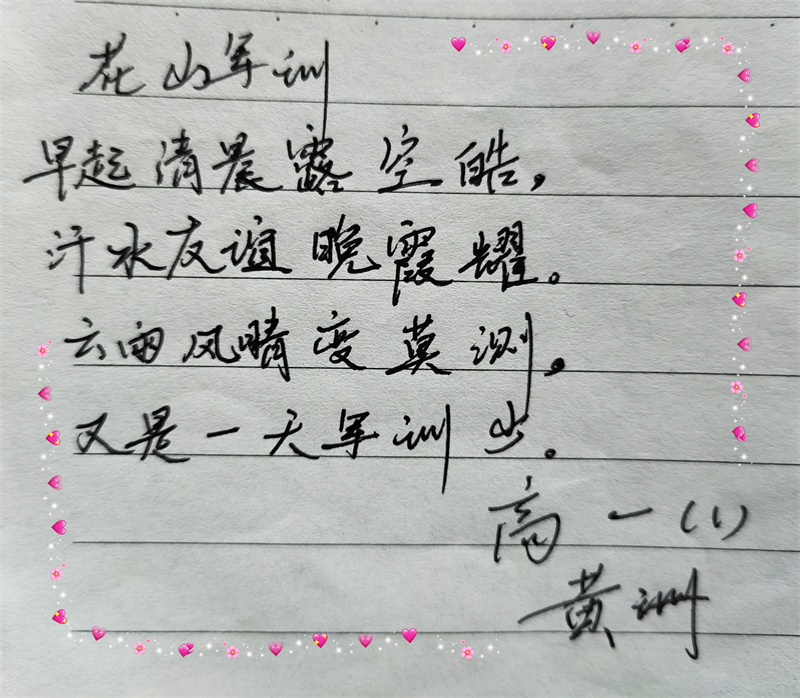 花山军训
早起清晨露空皓，
汗水友谊晚霞耀。
云雨风晴变莫测，
又是一天军训少。
高一(1)
黄训